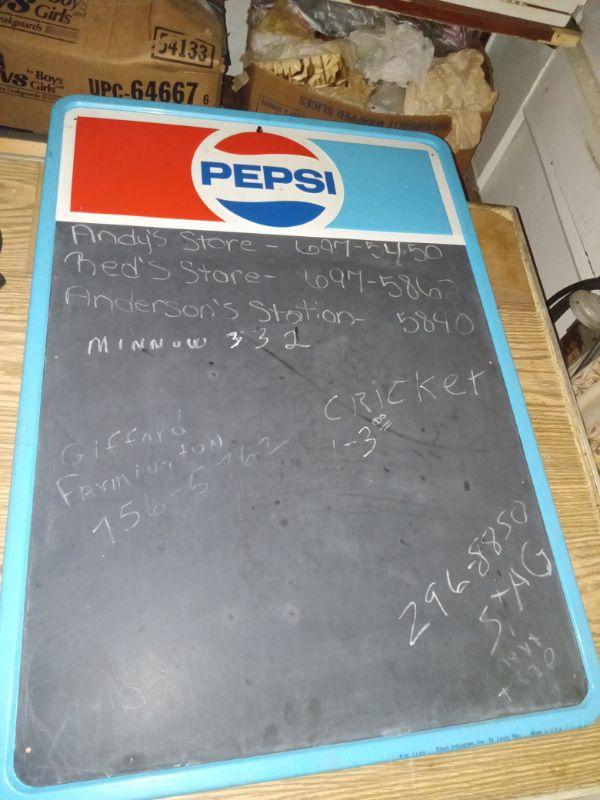 Boys
Girls
54133
Boys
Girls
UPC-64667 6
PEPSI
Andy's Store - 697-5450
Red's Store - 697-5862
Anderson's Station - 5840
MINNOW 332
CRicket
1-3.00
Gifford
Farmington
756-5762
296-8850
StAG
Stout Industries, Inc. St. Louis, Mo. Made in U.S.A.